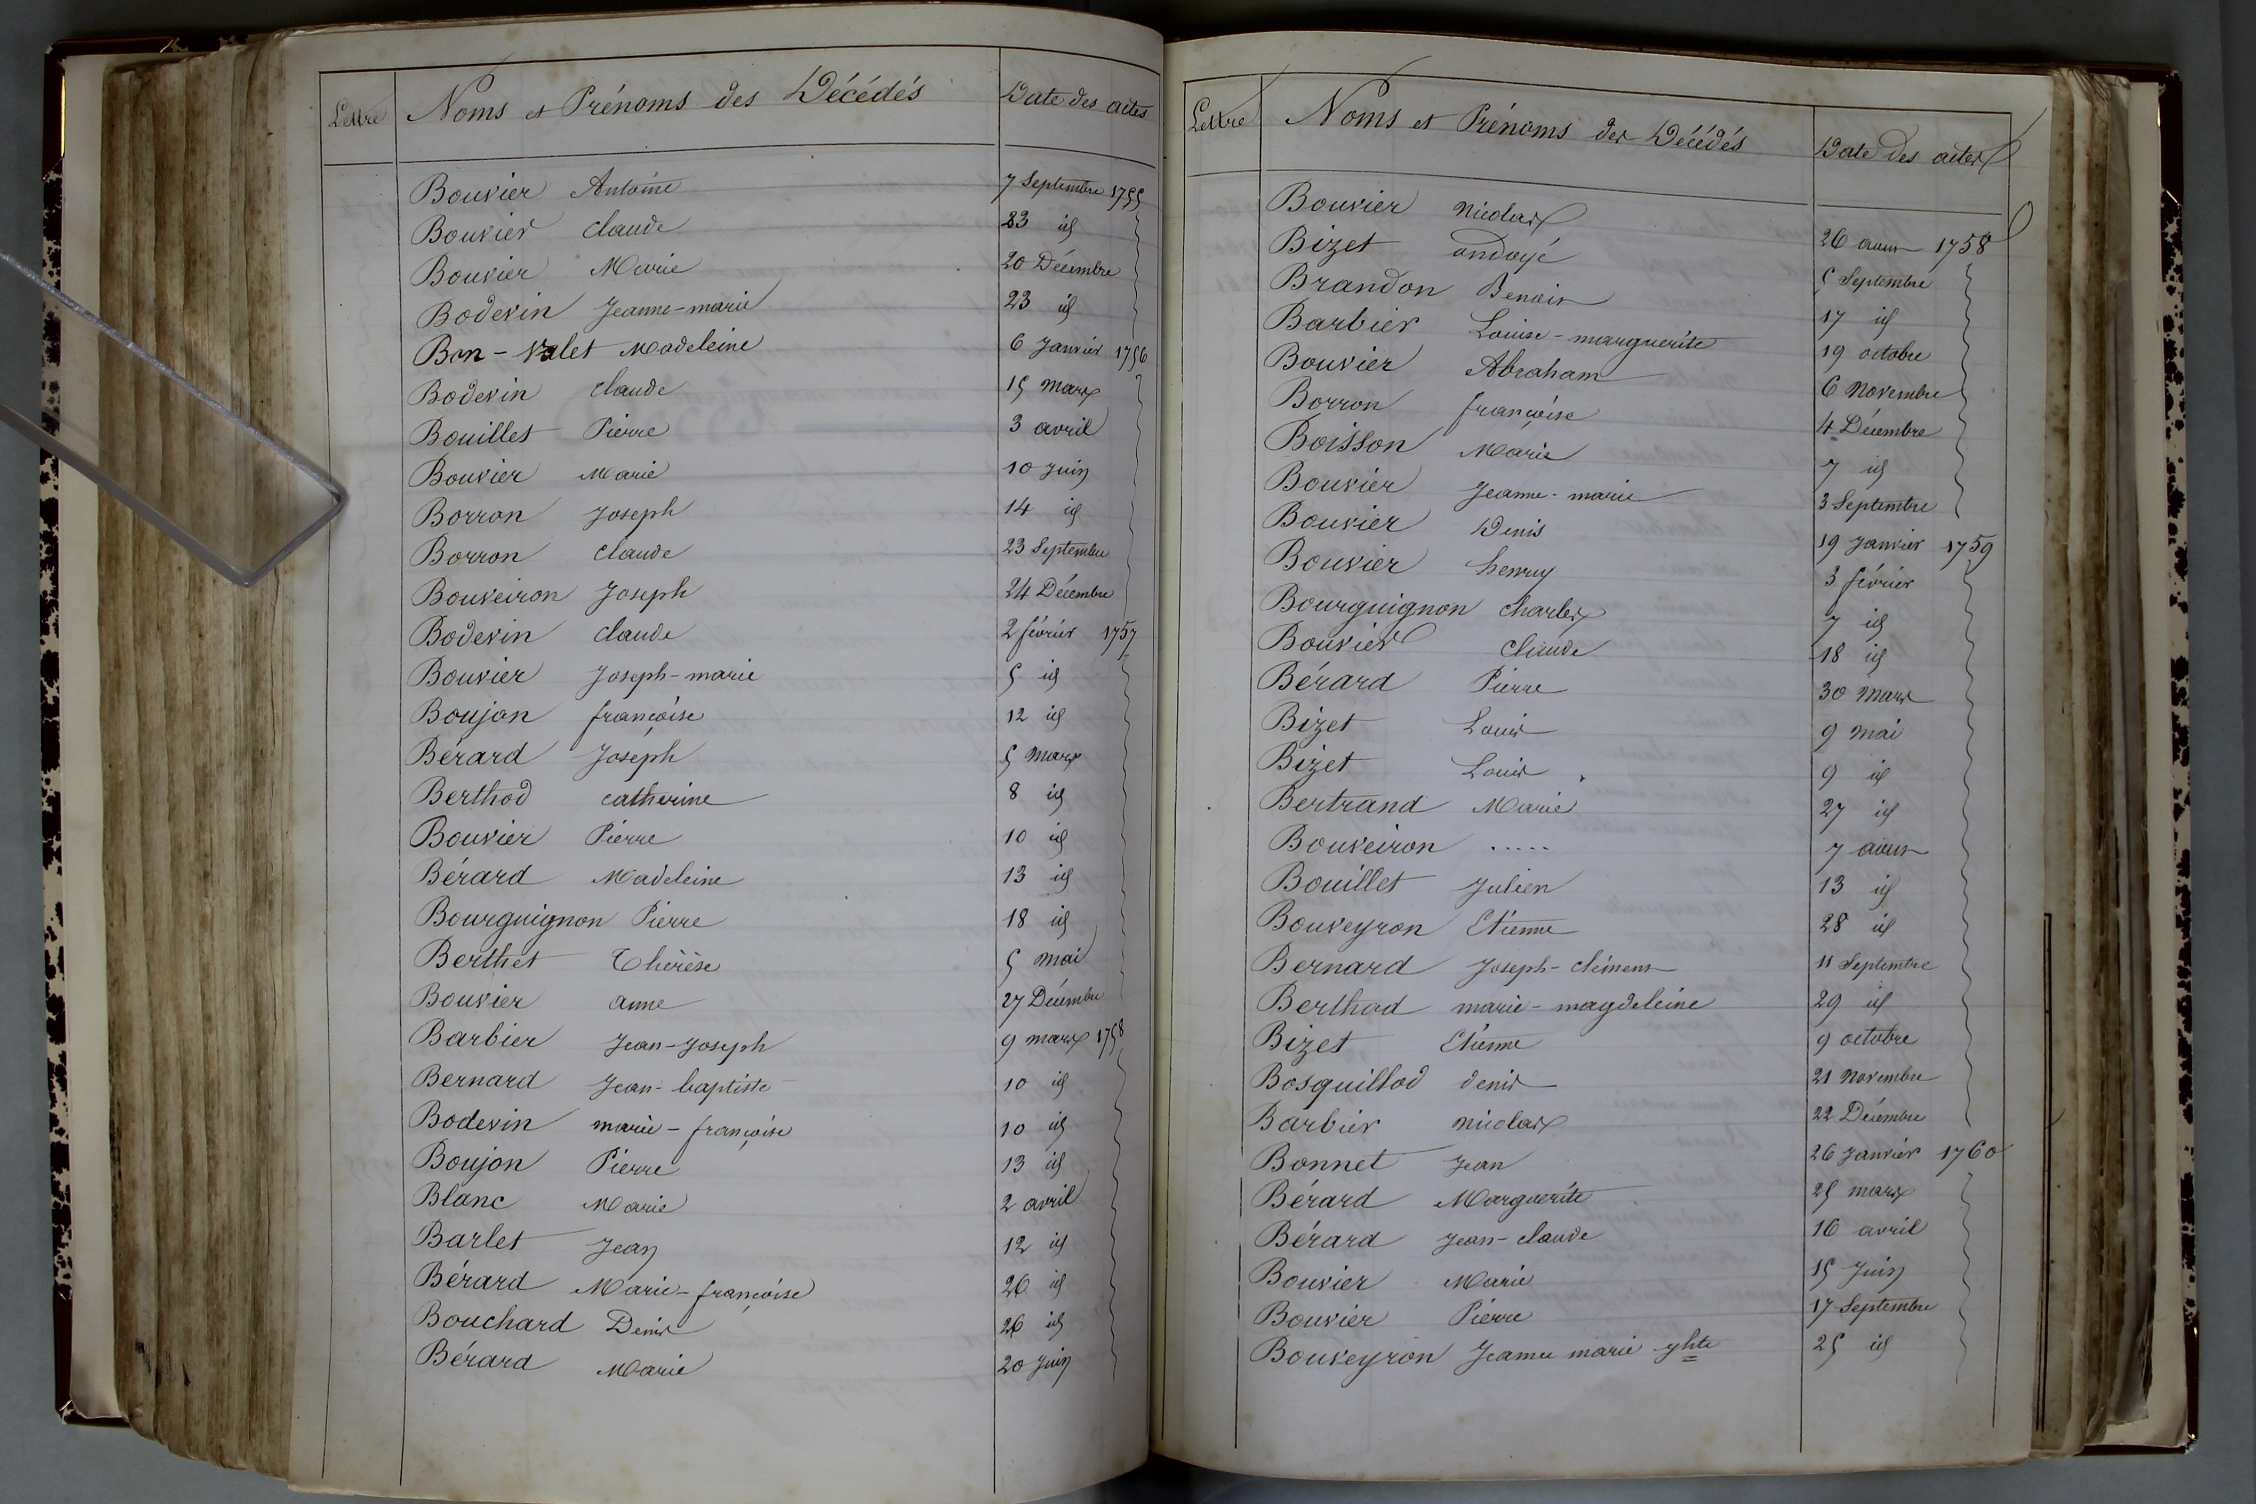 Lettre Noms et Prénoms des Décédés Date des actes
Bouvier Antoine 7 Septembre 1755
Bouvier claude 23 id
Bouvier Marie 20 Décembre
Bodevin Jeanne-marie 23 id
Bon-Valet Madeleine 6 Janvier 1756
Bodevin claude 15 Mars
Bouillet Pierre 3 avril
Bouvier Marie 10 Juin
Borron Joseph 14 id
Borron claude 23 Septembre
Bouveiron Joseph 24 Décembre
Bodevin claude 2 février 1757
Bouvier Joseph-marie 5 id
Boujon françoise 12 id
Bérard Joseph 5 Mars
Berthod catherine 8 id
Bouvier Pierre 10 id
Bérard Madeleine 13 id
Bourguignon Pierre 18 id
Berthet Thérèse 5 mai
Bouvier anne 27 Décembre
Barbier Jean-Joseph 9 mars 1758
Bernard Jean-baptiste 10 id
Bodevin marie-françoise 10 id
Boujon Pierre 13 id
Blanc Marie 2 avril
Barlet Jean 12 id
Bérard Marie-françoise 26 id
Bouchard Denis 26 id
Bérard Marie 20 Juin
Lettre Noms et Prénoms des Décédés Date des actes
Bouvier Nicolas 26 aout 1758
Bizet ondoyé 5 Septembre
Brandon Benoit 17 id
Barbier Louise-marguerite 19 octobre
Bouvier Abraham 6 Novembre
Borron françoise 4 Décembre
Boisson Marie 7 id
Bouvier Jeanne-marie 3 Septembre
Bouvier Denis 19 Janvier 1759
Bouvier henry 3 février
Bourguignon charles 7 id
Bouvier Claude 18 id
Bérard Pierre 30 Mars
Bizet Louis 9 Mai
Bizet Louis 9 id
Bertrand Marie 27 id
Bouveiron ..... 7 aout
Bouillet Julien 13 id
Bouveyron Etienne 28 id
Bernard Joseph-clément 11 Septembre
Berthod marie-magdeleine 29 id
Bizet Etienne 9 octobre
Bosquillod denis 21 Novembre
Barbier Nicolas 22 Décembre
Bonnet Jean 26 Janvier 1760
Bérard Marguerite 25 mars
Bérard Jean-claude 16 avril
Bouvier Marie 15 Juin
Bouvier Pierre 17 Septembre
Bouveyron Jeanne marie yhte 25 id